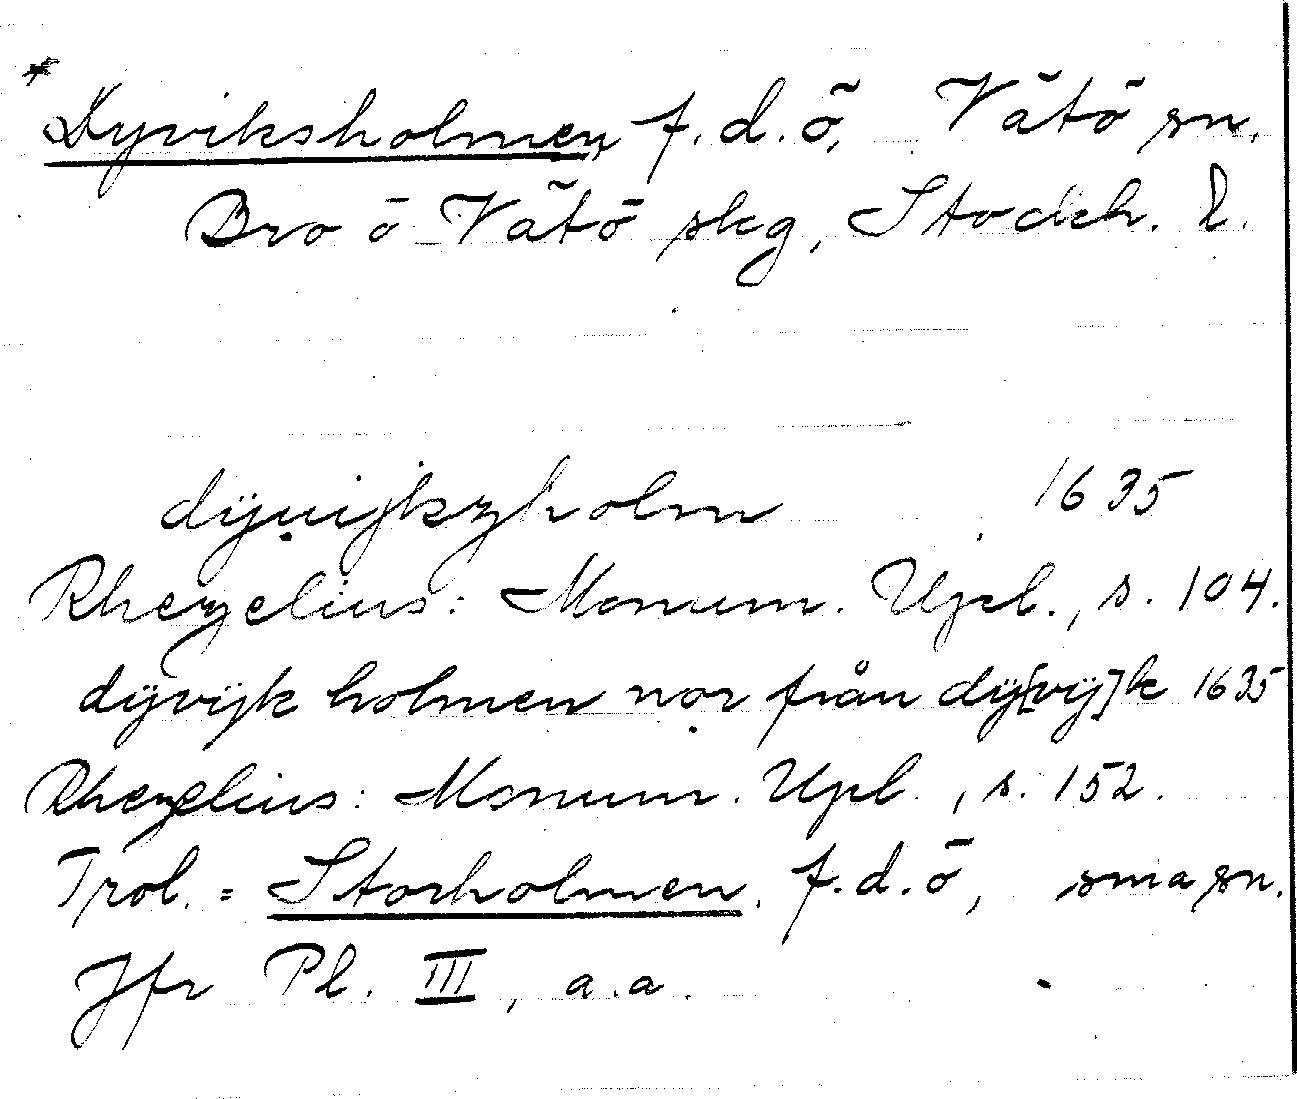 * Dyviksholmen, f.d.ö, Vätö sn,
Bro o Vätö skg, Stockh. l.
dÿuijkzholm 1635
Rhezelius: Monum. Upl., s. 104.
dÿvijk holmen nor från dÿ[vij]k 1635
Rhezelius: Monum. Upl., s. 152.
Trol. = Storholmen, f.d.ö, sma sn.
Jfr Pl. III, a.a.